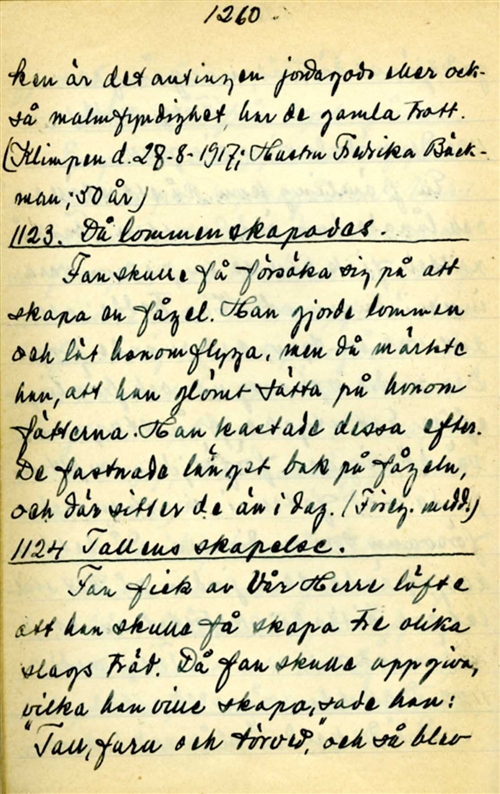 1260
ken är det antingen jordagods eller ock-
så malmfyndighet, har de gamla trott.
(Klimpen d. 28-8-1917; Hustru Fredrika Bäck-
man; 50 år)
1123. Då lommen skapades.
Fan skulle få försöka sig på att
skapa en fågel. Han gjorde lommen
och lät honom flyga, men då märkte
han, att han glömt sätta på honom
fötterna. Han kastade dessa efter.
De fastnade längst bak på fågeln,
och där sitter de än i dag. (Föreg. medd.)
1124 Tallens skapelse.
Fan fick av Vår Herre löfte
att han skulle få skapa tre olika
slags träd. Då fan skulle uppgiva,
vilka han ville skapa, sade han:
"Tall, furu och törved," och så blev